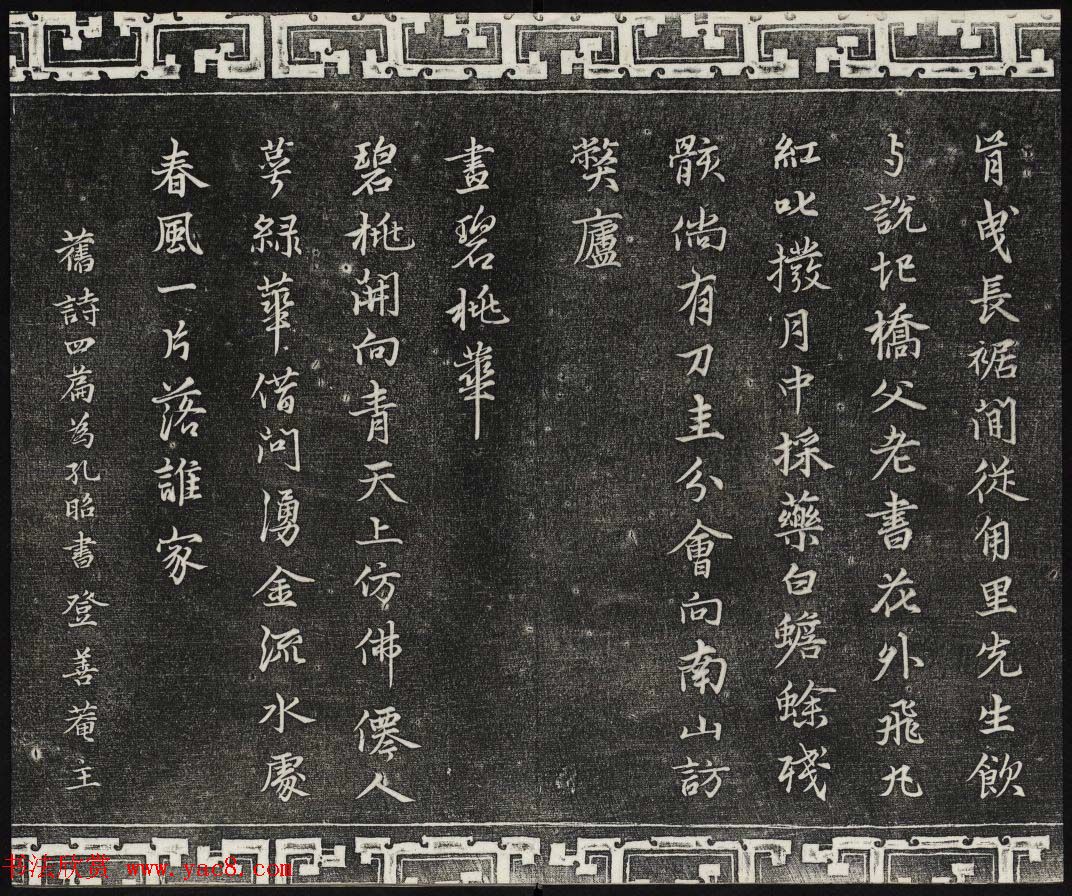 肯曳長裾閒從甪里先生飲
与說圯橋父老書花外飛丸
紅叱撥月中採藥白蟾蜍殘
骸倘有刀圭分會向南山訪
獘廬
畫碧桃華
碧桃開向青天上仿佛僊人
萼綠華借问湧金流水處
春風一片落誰家
舊詩四篇為孔昭書登善菴主
书法欣赏 www.yac8.com